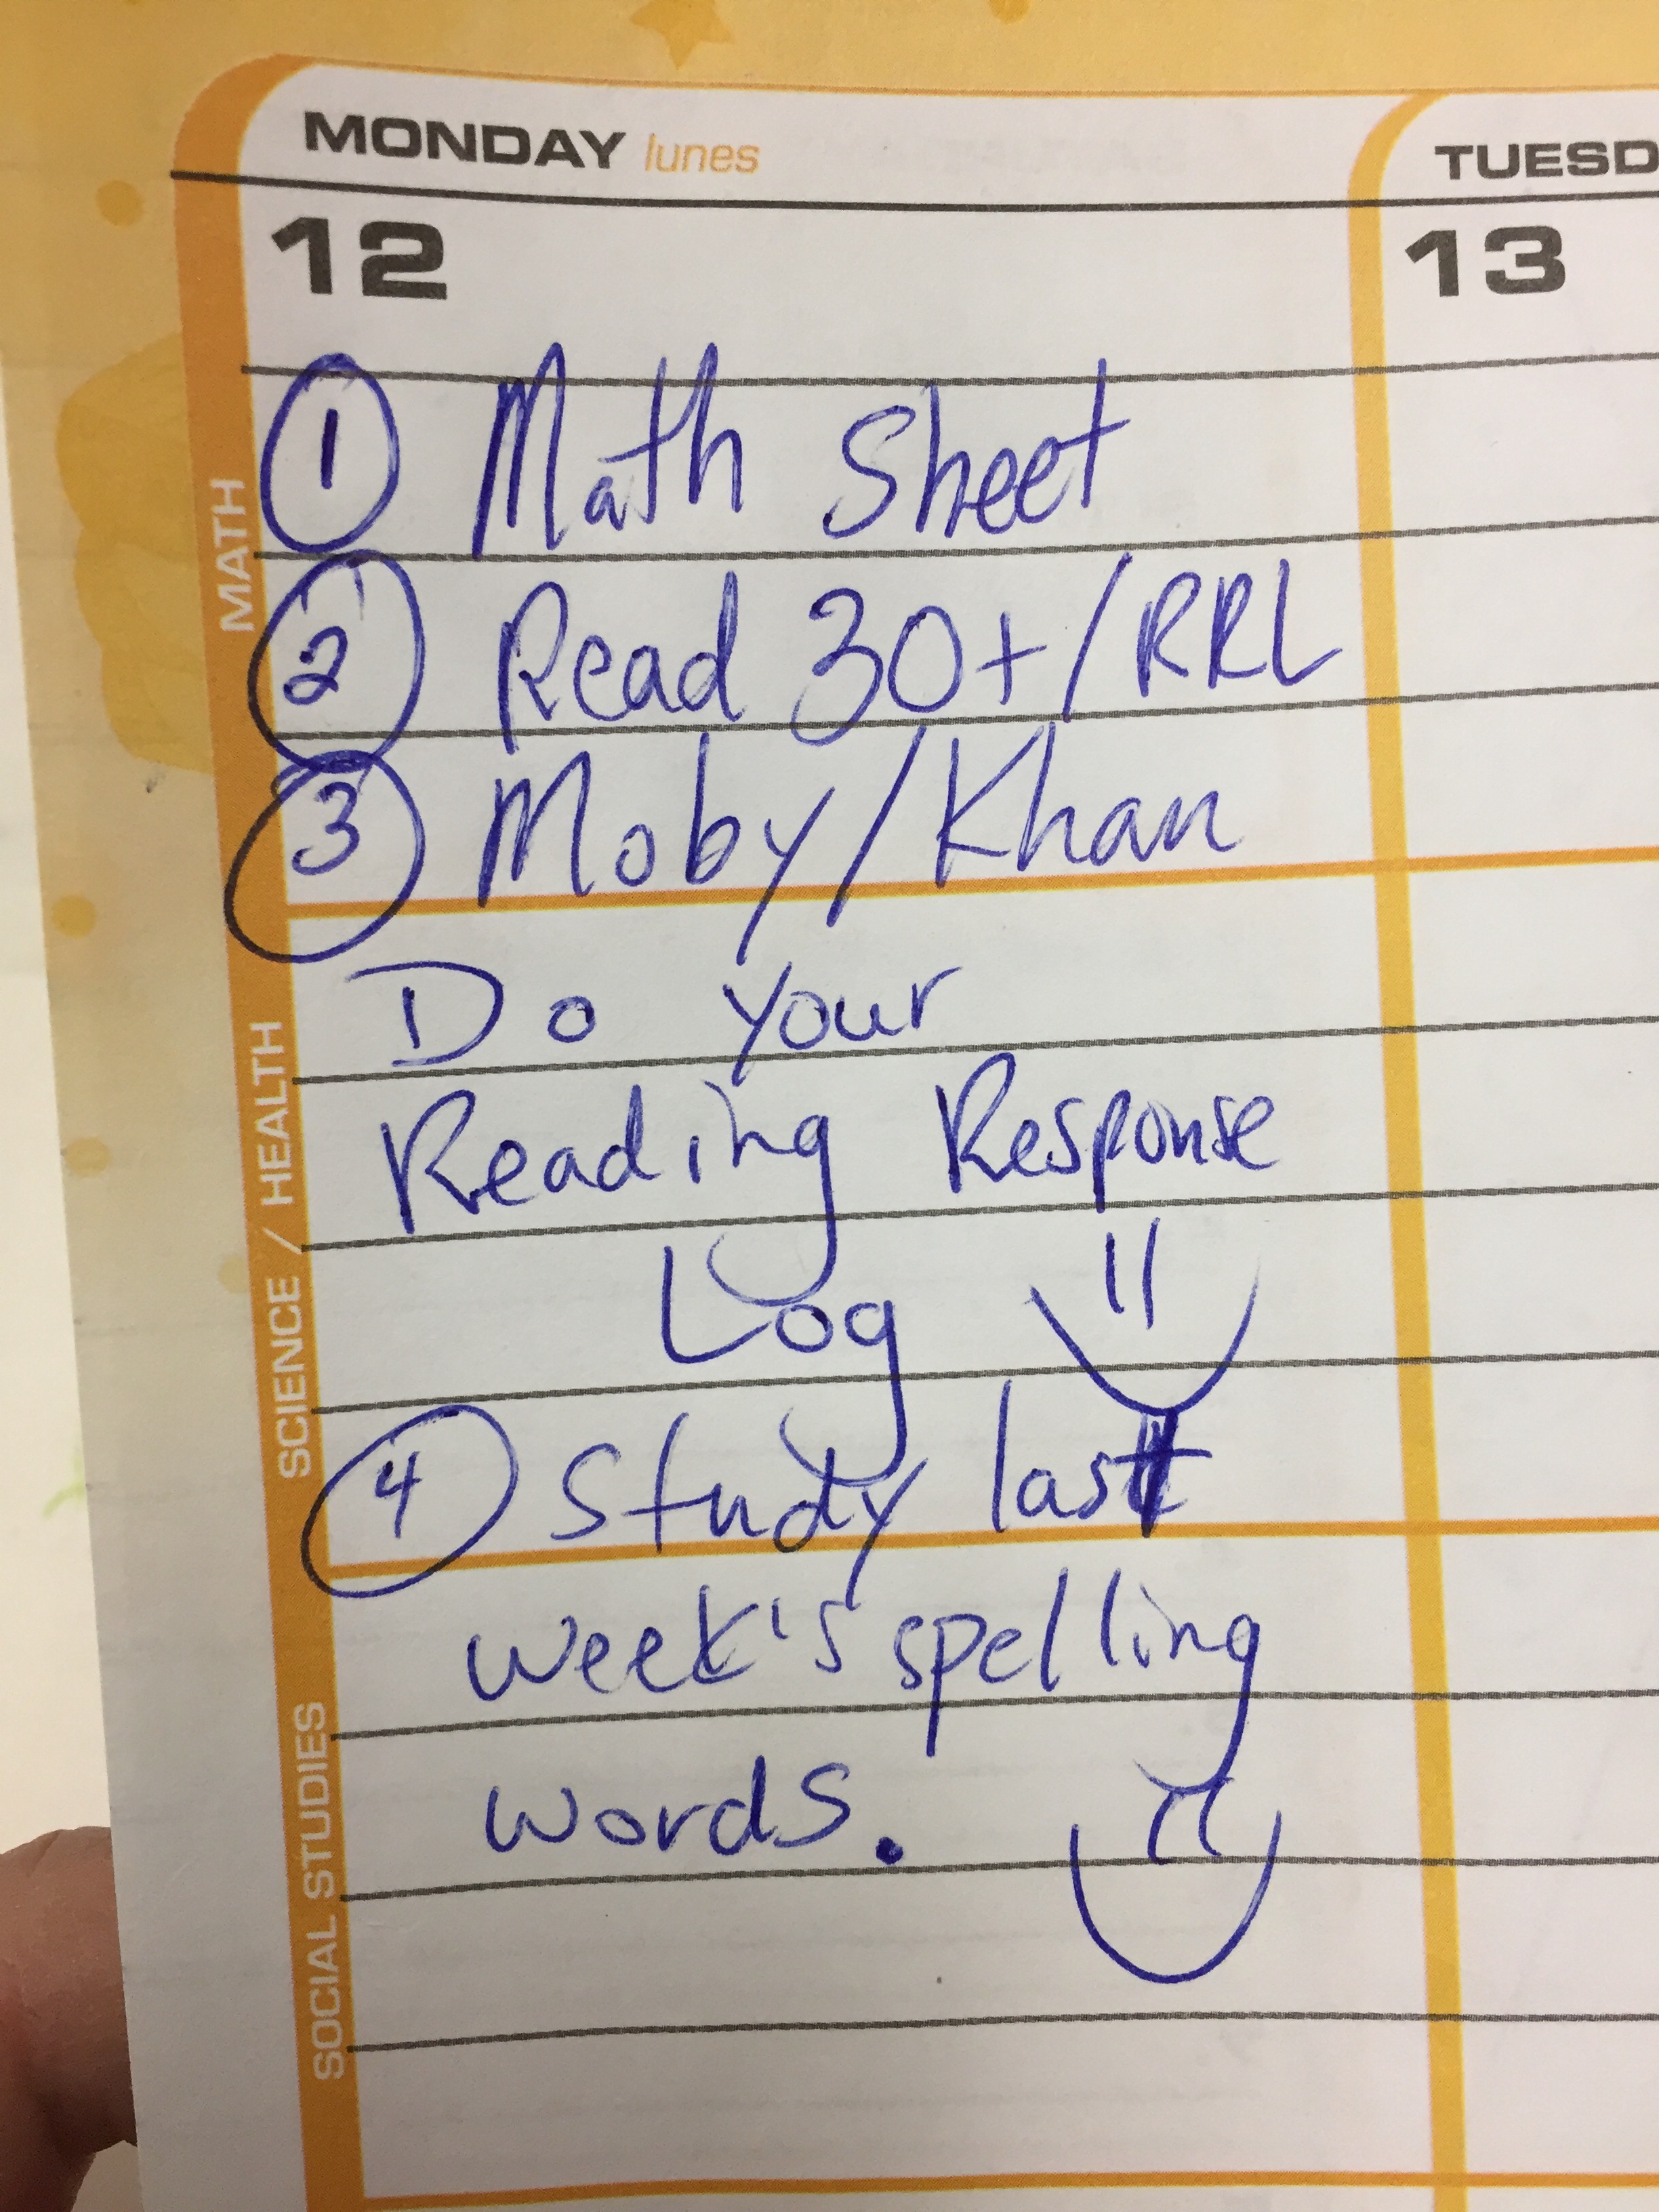 MONDAY lunes
TUESD
12
13
MATH
1 Math Sheet
2 Read 30+/RRL
3 Moby/Khan
SCIENCE / HEALTH
Do your
Reading Response
Log
4 Study last
SOCIAL STUDIES
week's spelling
words.